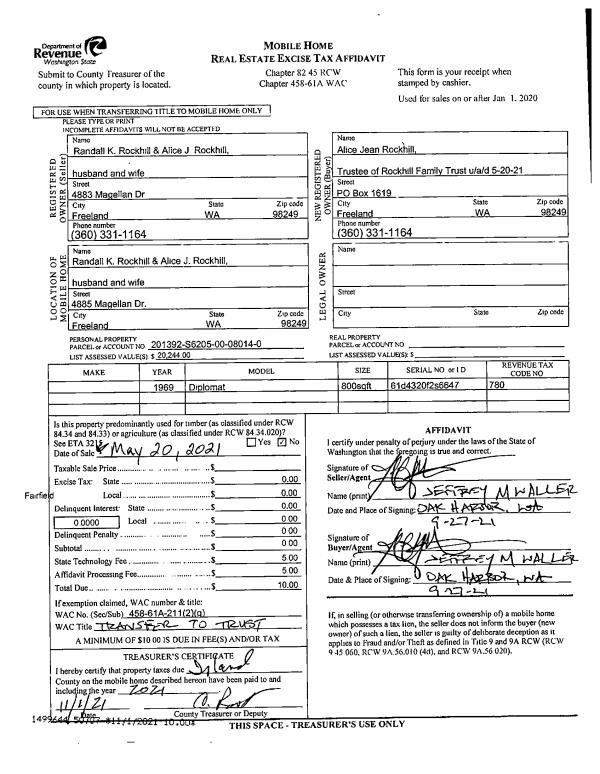 Department of
Revenue
Washington State
Submit to County Treasurer of the
county in which property is located.
MOBILE HOME
REAL ESTATE EXCISE TAX AFFIDAVIT
Chapter 82 45 RCW
Chapter 458-61A WAC
This form is your receipt when
stamped by cashier.
Used for sales on or after Jan 1. 2020
FOR USE WHEN TRANSFERRING TITLE TO MOBILE HOME ONLY
PLEASE TYPE OR PRINT
INCOMPLETE AFFIDAVITS WILL NOT BE ACCEPTED
REGISTERED
OWNER (Seller)
Name
Randall K. Rockhill & Alice J Rockhill,
husband and wife
Street
4883 Magellan Dr
City State Zip code
Freeland WA 98249
Phone number
(360) 331-1164
NEW REGISTERED
OWNER (Buyer)
Name
Alice Jean Rockhill,
Trustee of Rockhill Family Trust u/a/d 5-20-21
Street
PO Box 1619
City State Zip code
Freeland WA 98249
Phone number
(360) 331-1164
LOCATION OF
MOBILE HOME
Name
Randall K. Rockhill & Alice J. Rockhill,
husband and wife
Street
4885 Magellan Dr.
City State Zip code
Freeland WA 98249
LEGAL OWNER
Name
Street
City State Zip code
PERSONAL PROPERTY
PARCEL or ACCOUNT NO 201392-S6205-00-08014-0
LIST ASSESSED VALUE(S): $ 20,244 00
REAL PROPERTY
PARCEL or ACCOUNT NO
LIST ASSESSED VALUE(S): $
MAKE YEAR MODEL SIZE SERIAL NO or I D REVENUE TAX CODE NO
1969 Diplomat 800sqft 61d4320f2s6647 780
Is this property predominantly used for timber (as classified under RCW
84.34 and 84.33) or agriculture (as classified under RCW 84 34.020)?
See ETA 3215 Yes No
Date of Sale May 20, 2021
Taxable Sale Price $
Excise Tax: State $ 0.00
Farfield Local $ 0.00
Delinquent Interest: State $ 0.00
0.0000 Local $ 0 00
Delinquent Penalty $ 0 00
Subtotal $ 0 00
State Technology Fee $ 5 00
Affidavit Processing Fee $ 5 00
Total Due $ 10.00
If exemption claimed, WAC number & title:
WAC No. (Sec/Sub) 458-61A-211(2)(g)
WAC Title TRANSFER TO TRUST
A MINIMUM OF $10 00 IS DUE IN FEE(S) AND/OR TAX
TREASURER'S CERTIFICATE
I hereby certify that property taxes due Island
County on the mobile home described hereon have been paid to and
including the year 2021
11/1/21
Date County Treasurer or Deputy
AFFIDAVIT
I certify under penalty of perjury under the laws of the State of
Washington that the foregoing is true and correct.
Signature of
Seller/Agent
Name (print) JEFFREY M WALLER
Date and Place of Signing: OAK HARBOR, WA
9-27-21
Signature of
Buyer/Agent
Name (print) JEFFREY M WALLER
Date & Place of Signing: OAK HARBOR, WA
9-27-21
If, in selling (or otherwise transferring ownership of) a mobile home
which possesses a tax lien, the seller does not inform the buyer (new
owner) of such a lien, the seller is guilty of deliberate deception as it
applies to Fraud and/or Theft as defined in Title 9 and 9A RCW (RCW
9 45 060, RCW 9A.56.010 (4d), and RCW 9A.56 020).
THIS SPACE - TREASURER'S USE ONLY